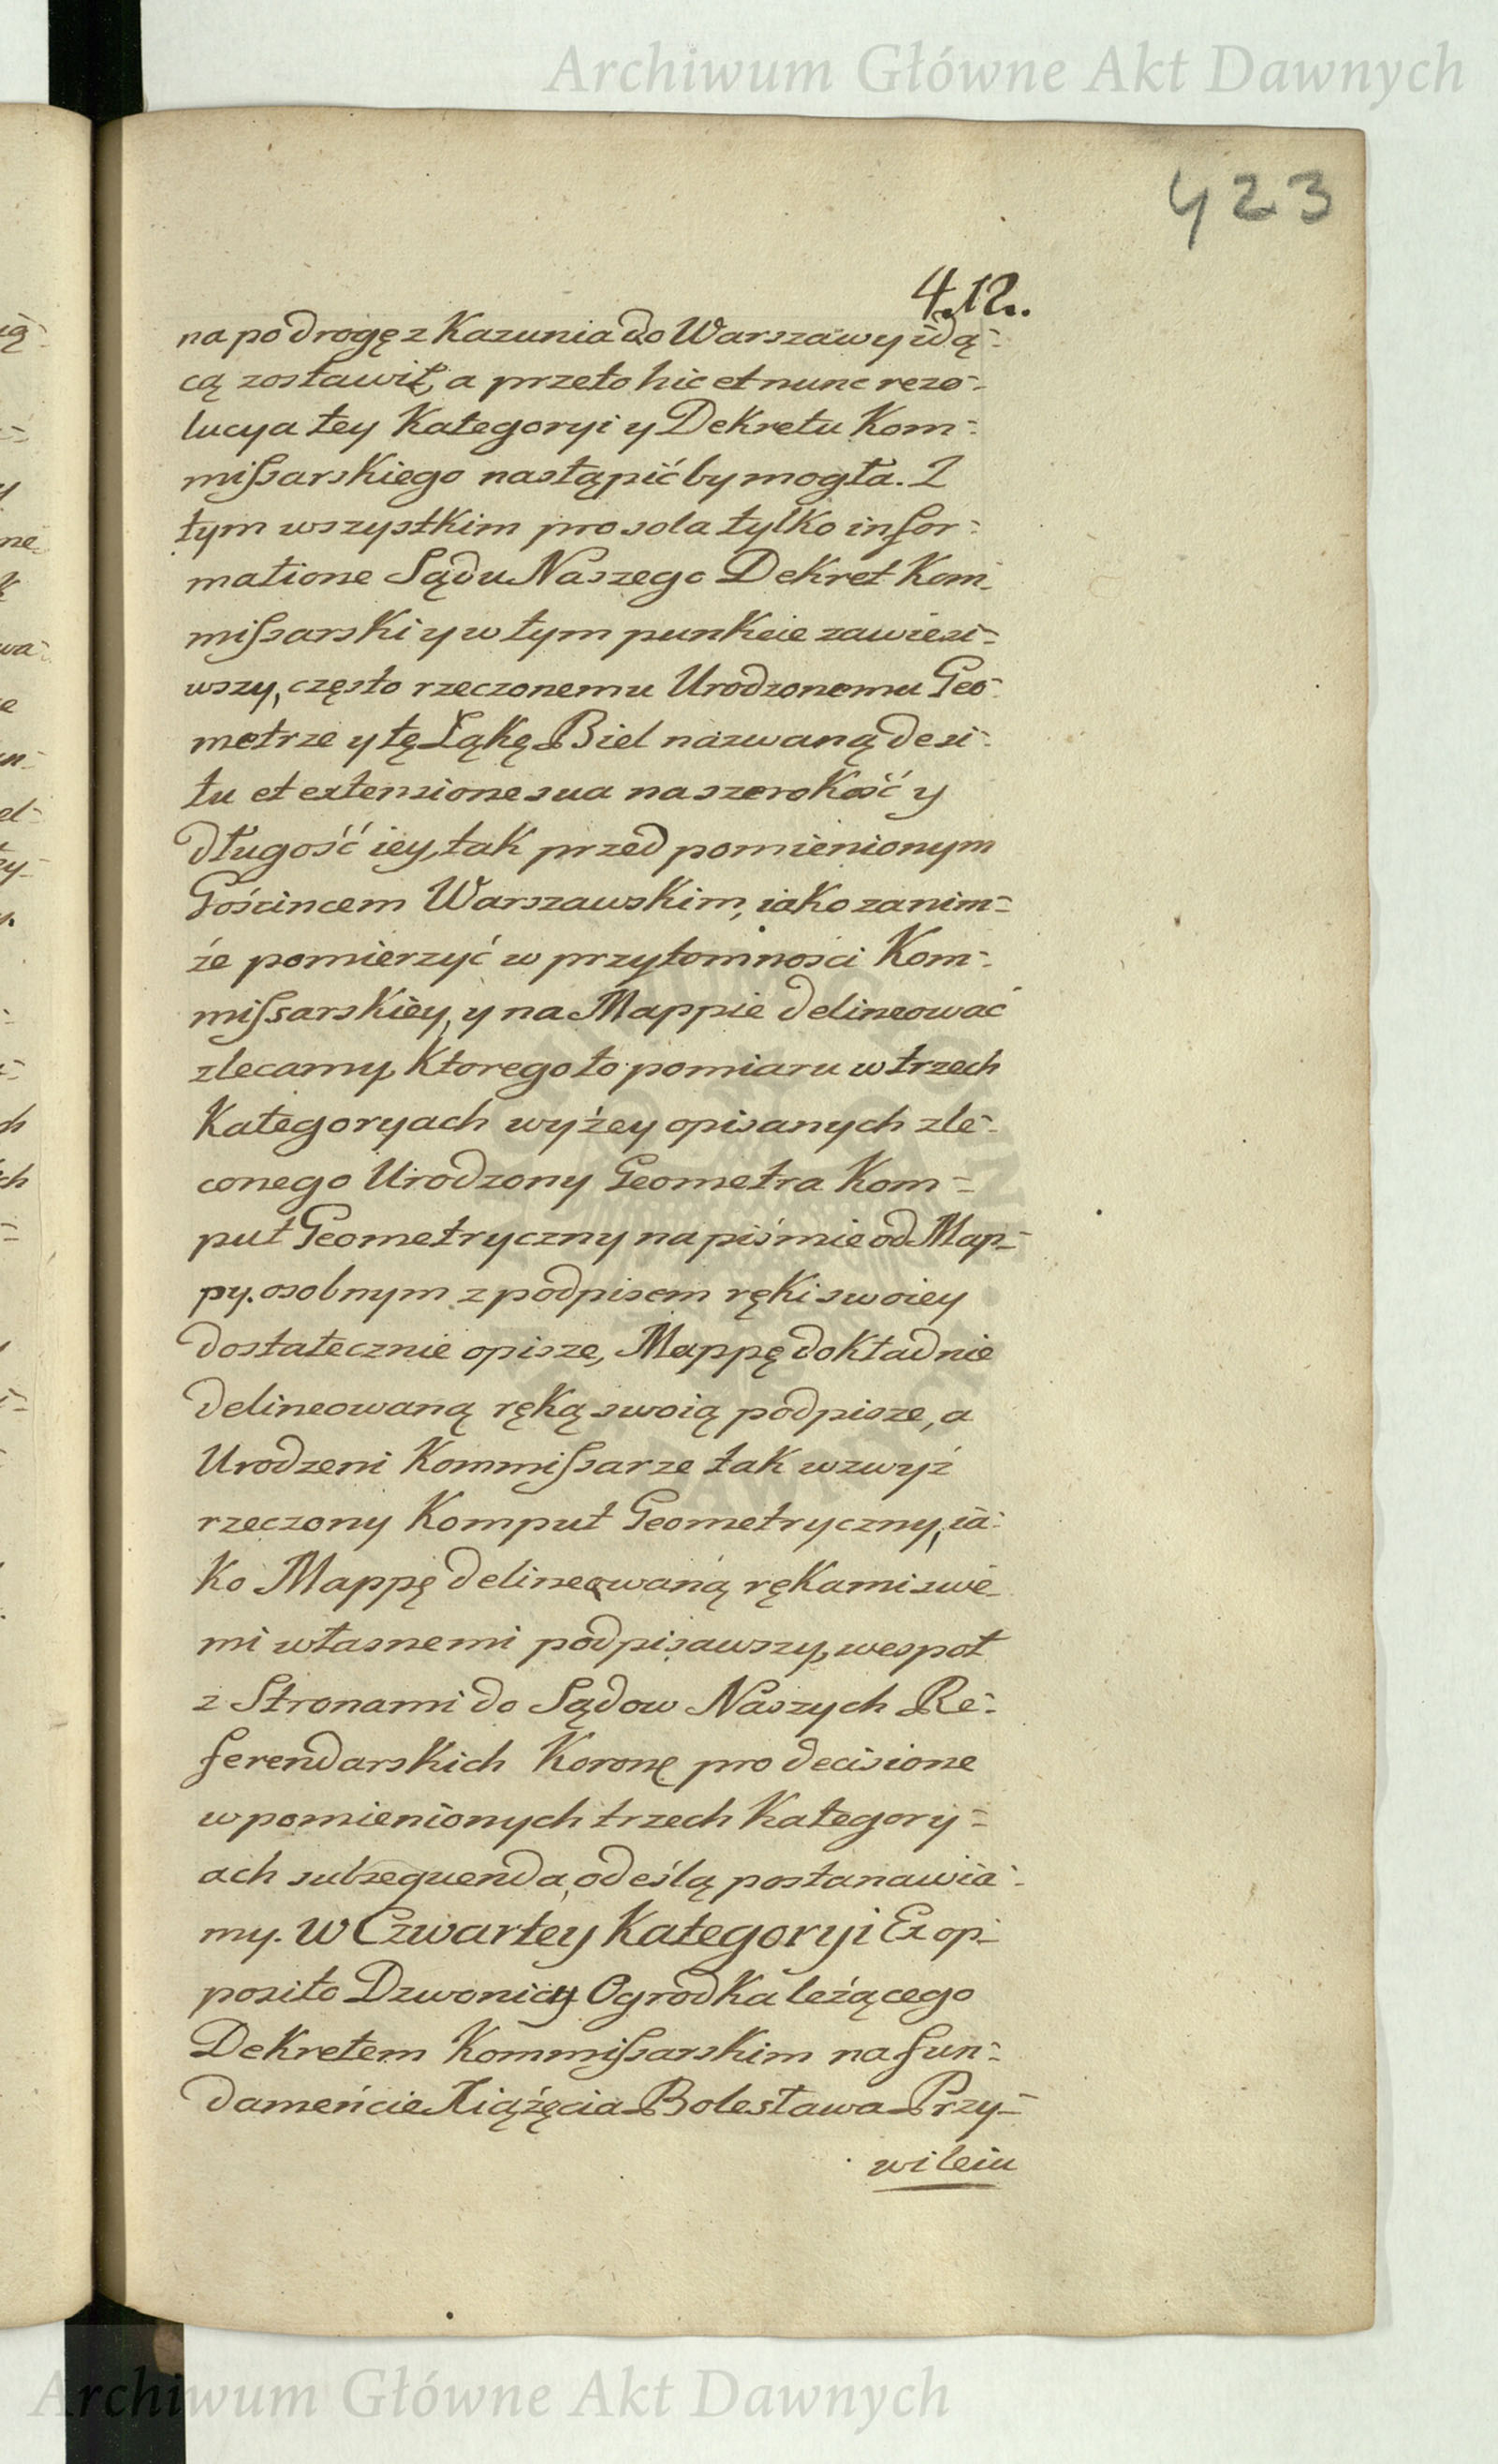 Archiwum Główne Akt Dawnych
423
412.
na po drogę z Kazunia do Warszawy idą=
cą zostawił, a przeto hic et nunc rezo=
lucya tey Kategoryi y Dekretu Kom=
mißarskiego nastąpić by mogła. Z
tym wszystkim pro sola tylko infor=
matione Sądu Naszego Dekret Kom=
mißarski y w tym punkcie zawiesi=
wszy, często rzeczonemu Urodzonemu Geo=
metrze y tę Łąkę Biel nazwaną de si=
tu et extensione sua na szerokość y
długość iey, tak przed pomienionym
Gościncem Warszawskim, iako za nim=
że pomierzyć w przytomnosci Kom=
mißarskiey, y na Mappie delineować
zlecamy, Ktorego to pomiaru w trzech
Kategoryach wyżey opisanych zle=
conego Urodzony Geometra Kom=
put Geometryczny na piśmie od Map=
py osobnym z podpisem ręki swoiey
dostatecznie opisze, Mappę dokładnie
delineowaną ręką swoią podpisze, a
Urodzeni Kommißarze tak wzwyż
rzeczony Komput Geometryczny, ia=
ko Mappę delineowaną rękami swe=
mi własnemi podpisawszy, wespoł
z Stronami do Sądow Naszych Re=
ferendarskich Koronę pro decisione
w pomienionych trzech Kategory=
ach subsequenda, odeślą postanawia=
my. W Czwartey Kategoryi Ex op=
posito Dzwonicy Ogrodka leżącego
Dekretem Kommißarskim na fun=
damencie Xiążęcia Bolesława Przy=
wileiu
Archiwum Główne Akt Dawnych